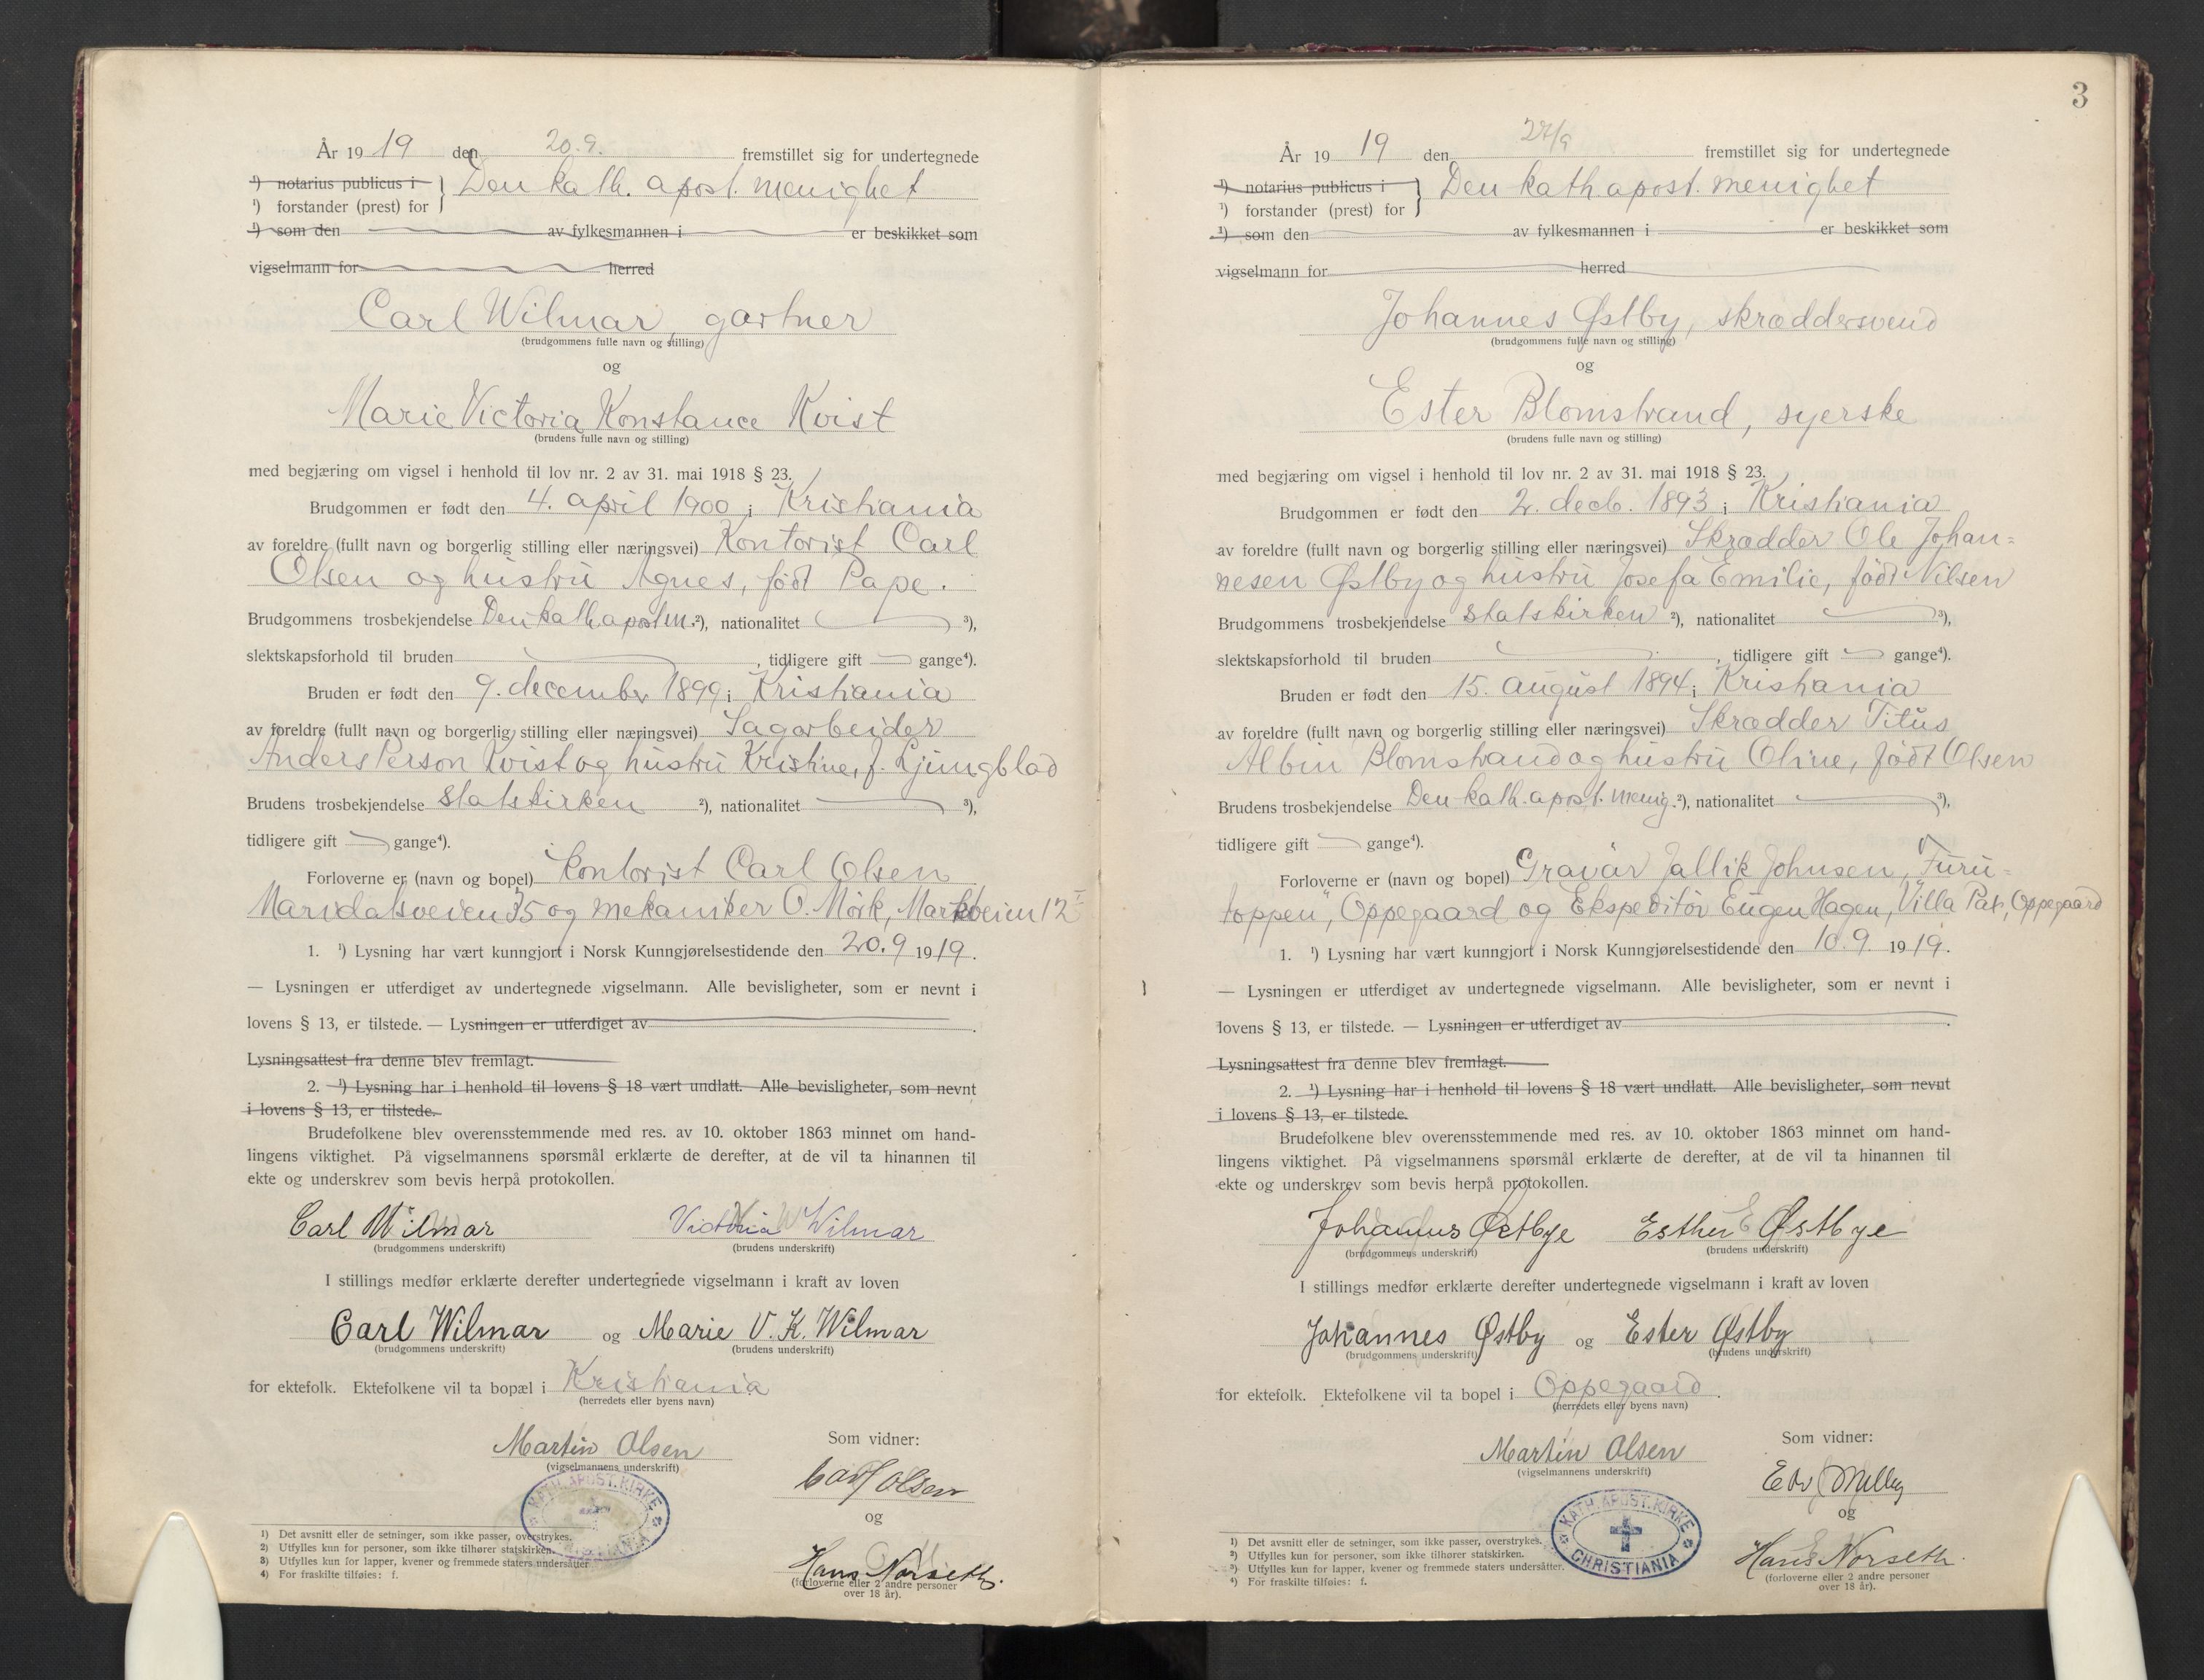 År 1919 den 20.9. fremstillet sig for undertegnede
¹) notarius publicus i } Den kath. apost. menighet
¹) forstander (prest) for
¹) som den av fylkesmannen i er beskikket som
vigselmann for herred
Carl Wilmar, gartner
(brudgommens fulle navn og stilling)
og
Marie Victoria Konstance Kvist
(brudens fulle navn og stilling)
med begjæring om vigsel i henhold til lov nr. 2 av 31. mai 1918 § 23.
Brudgommen er født den 4. april 1900 i Kristiania
av foreldre (fullt navn og borgerlig stilling eller næringsvei) Kontorist Carl
Olsen og hustru Agnes, født Pape.
Brudgommens trosbekjendelse Den kath. apost. m. ²), nationalitet ³),
slektskapsforhold til bruden , tidligere gift gange⁴).
Bruden er født den 9. december 1899 i Kristiania
av foreldre (fullt navn og borgerlig stilling eller næringsvei) Sagarbeider
Anders Person Kvist og hustru Kristine, f. Ljungblad
Brudens trosbekjendelse statskirken ²), nationalitet ³),
tidligere gift gange⁴).
Forloverne er (navn og bopel) Kontorist Carl Olsen
Maridalsveien 35 og mekaniker O. Mörk, Markveien 12 I
1. ¹) Lysning har vært kunngjort i Norsk Kunngjørelsestidende den 20.9 1919.
— Lysningen er utferdiget av undertegnede vigselmann. Alle bevisligheter, som er nevnt i
lovens § 13, er tilstede. — Lysningen er utferdiget av .
Lysningsattest fra denne blev fremlagt.
2. ¹) Lysning har i henhold til lovens § 18 vært undlatt. Alle bevisligheter, som nevnt
i lovens § 13, er tilstede.
Brudefolkene blev overensstemmende med res. av 10. oktober 1863 minnet om hand-
lingens viktighet. På vigselmannens spørsmål erklærte de derefter, at de vil ta hinannen til
ekte og underskrev som bevis herpå protokollen.
Carl Wilmar Victoria Wilmar
(brudgommens underskrift) (brudens underskrift)
I stillings medfør erklærte derefter undertegnede vigselmann i kraft av loven
Carl Wilmar og Marie V. K. Wilmar
(brudgommens underskrift) (brudens underskrift)
for ektefolk. Ektefolkene vil ta bopæl i Kristiania
(herredets eller byens navn)
Martin Olsen
(vigselmannens underskrift)
Som vidner:
Carl Olsen
og
Hans Norseth.
(forloverne eller 2 andre personer
over 18 år).
KATH. APOST. KIRKE
CHRISTIANIA
1) Det avsnitt eller de setninger, som ikke passer, overstrykes.
2) Utfylles kun for personer, som ikke tilhører statskirken.
3) Utfylles kun for lapper, kvener og fremmede staters undersåtter.
4) For fraskilte tilføies: f.
3
År 1919 den 27/9 fremstillet sig for undertegnede
¹) notarius publicus i } Den kath apost. menighet
¹) forstander (prest) for
¹) som den av fylkesmannen i er beskikket som
vigselmann for herred
Johannes Østby, skræddersvend
(brudgommens fulle navn og stilling)
og
Ester Blomstrand, syerske
(brudens fulle navn og stilling)
med begjæring om vigsel i henhold til lov nr. 2 av 31. mai 1918 § 23.
Brudgommen er født den 2. decb. 1893 i Kristiania
av foreldre (fullt navn og borgerlig stilling eller næringsvei) Skrædder Ole Johan=
nesen Østby og hustru Josefa Emilie, født Nilsen
Brudgommens trosbekjendelse statskirken ²), nationalitet ³),
slektskapsforhold til bruden , tidligere gift gange⁴).
Bruden er født den 15. august 1894 i Kristiania
av foreldre (fullt navn og borgerlig stilling eller næringsvei) Skrædder Titus
Albin Blomstrand og hustru Oline, født Olsen
Brudens trosbekjendelse Den kath. apost. menig. ²), nationalitet ³),
tidligere gift gange⁴).
Forloverne er (navn og bopel) Gravär Jallik Johnsen, "Furu=
toppen", Oppegaard og Ekspeditör Eugen Hagen, Villa Pax, Oppegaard
1. ¹) Lysning har vært kunngjort i Norsk Kunngjørelsestidende den 10.9. 1919.
— Lysningen er utferdiget av undertegnede vigselmann. Alle bevisligheter, som er nevnt i
lovens § 13, er tilstede. — Lysningen er utferdiget av .
Lysningsattest fra denne blev fremlagt.
2. ¹) Lysning har i henhold til lovens § 18 vært undlatt. Alle bevisligheter, som nevnt
i lovens § 13, er tilstede.
Brudefolkene blev overensstemmende med res. av 10. oktober 1863 minnet om hand-
lingens viktighet. På vigselmannens spørsmål erklærte de derefter, at de vil ta hinannen til
ekte og underskrev som bevis herpå protokollen.
Johannes Østbye Esther Østbye
(brudgommens underskrift) (brudens underskrift)
I stillings medfør erklærte derefter undertegnede vigselmann i kraft av loven
Johannes Østby og Ester Østby
(brudgommens underskrift) (brudens underskrift)
for ektefolk. Ektefolkene vil ta bopel i Oppegaard.
(herredets eller byens navn)
Martin Olsen
(vigselmannens underskrift)
Som vidner:
Edv Melby
og
Hans Norseth.
(forloverne eller 2 andre personer
over 18 år).
KATH. APOST. KIRKE
CHRISTIANIA
¹) Det avsnitt eller de setninger, som ikke passer, overstrykes.
²) Utfylles kun for personer, som ikke tilhører statskirken.
³) Utfylles kun for lapper, kvener og fremmede staters undersåtter.
⁴) For fraskilte tilføies: f.